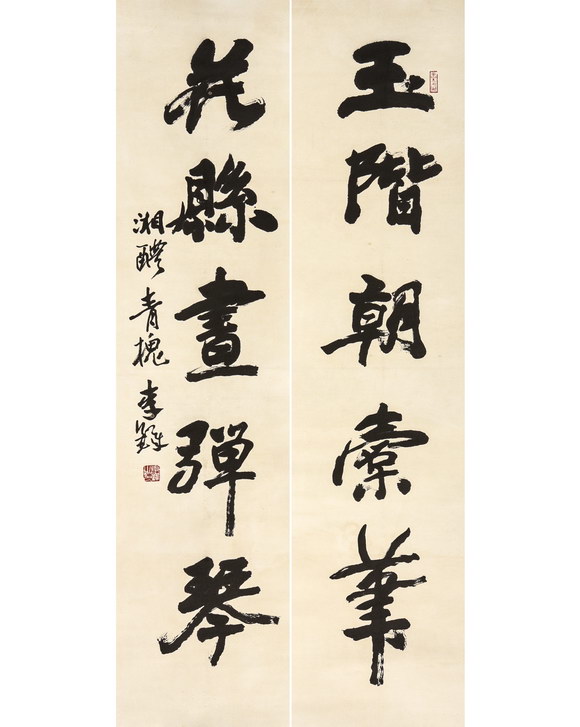 玉階朝橐筆
花縣晝彈琴
湘醴青槐李鐸